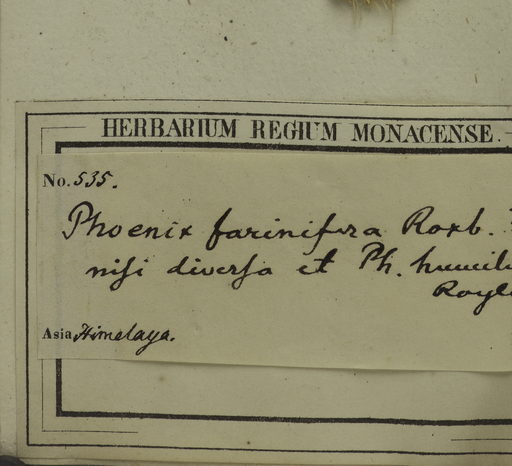 HERBARIUM REGIUM MONACENSE.
No. 535.
Phoenix farinifera Roxb.
nisi diversa et Ph. humilis
Royle
Asia Himelaya.